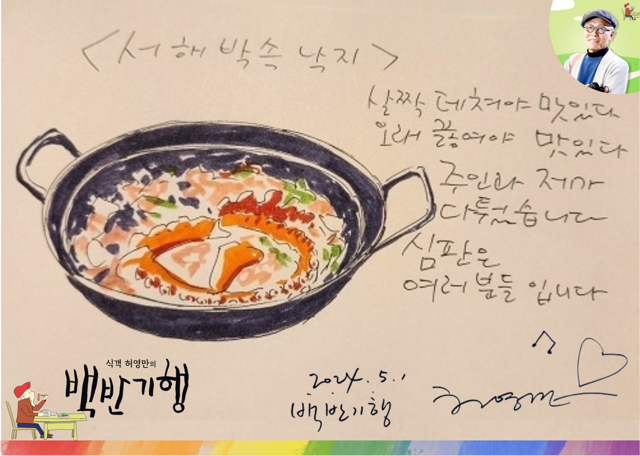 <서해 박속 낙지>
살짝 데쳐야 맛있다
오래 끓여야 맛있다
주인과 저가
다퉜습니다
심판은
여러분들 입니다
식객 허영만의
백반기행
2024. 5. 1
백반기행
허영만